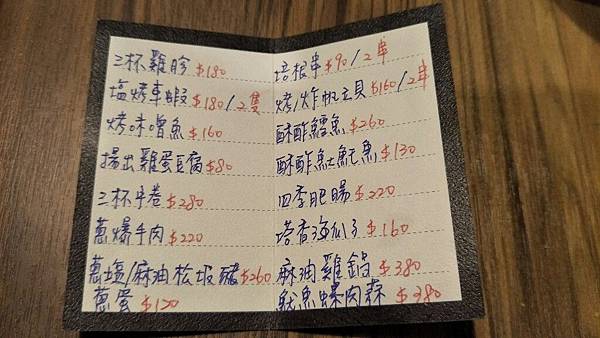 三杯雞胗 $180
塩烤車蝦 $180/2隻
烤味噌魚 $160
揚出雞蛋豆腐 $80
三杯中卷 $280
蔥爆牛肉 $220
蔥塩/麻油松坂豬 $260
蔥蛋 $120
培根串 $90/2串
烤/炸帆立貝 $160/2串
酥酢鱈魚 $260
酥酢魟魠魚 $130
四季肥腸 $220
塔香海瓜子 $160
麻油雞鍋 $380
魷魚螺肉蒜 $380